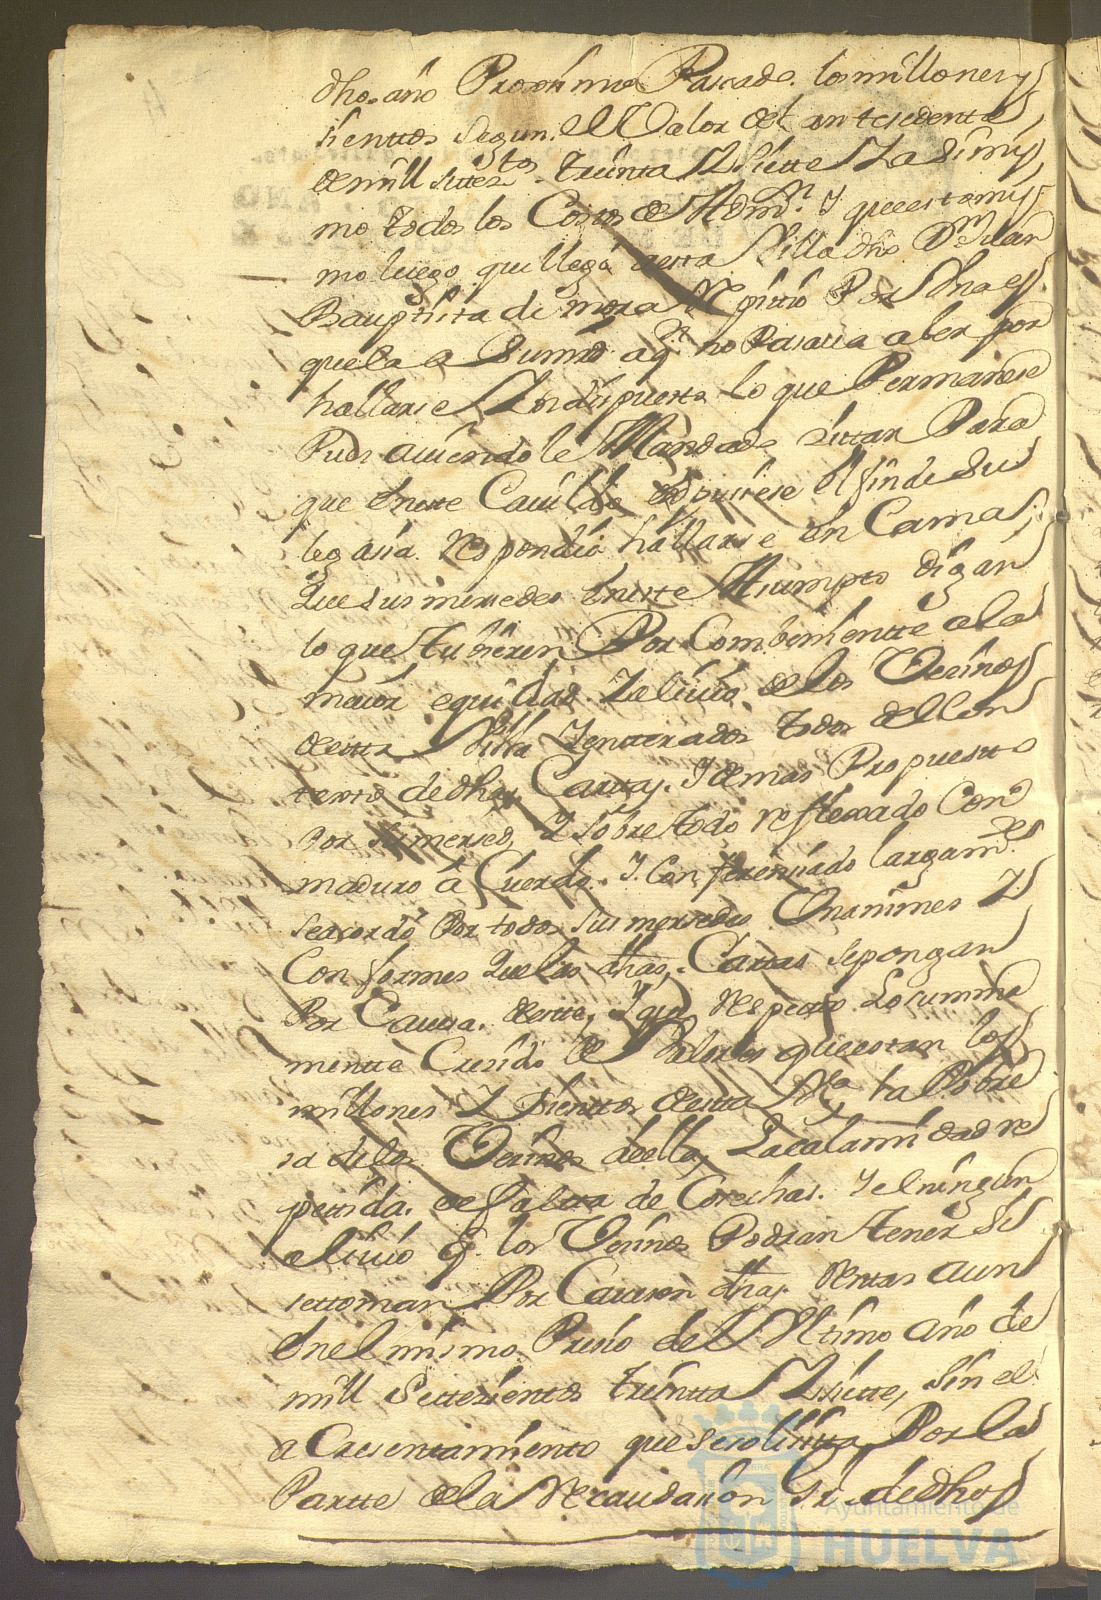 dho. año Proximo Pasado. los millones y
sienttos segun. el Valor del antesedente
de mill settez.tos treinta Y siette Y asimis
mo todos los Costos de Adm.n Y que estamis
mo luego que llegó a esta Villa dho D.n Juan
Bauptista de mora
que la a Sumd a q.e no Pasaua a ber por
hallarse Yndispuesto lo que Permanese
Pues auiendole Mandado zittar Para
que en este Cauildo expusiese el fin de su
legasia. Respondió hallarse en Cama,
Que sus mersedes en este Asumpto digan
lo que tubieren Por Combeniente a la
maior equidad Y aliuio de los Vecinos
de esta Villa Y entterados todos del Con
tenido de dhas Cartas. Y demas Propuesto
por su mersed, Y sobre todo reflexado Con
maduro a Cuerdo. Y Conferenziado largam.te
se acordó Por todos sus mersedes Vnanimes Y
Conformes Que las dhas. Cartas se pongan
Por Cauesa. de este, Y que Respecto Lo summa
mente Cresido de Valores que estan los
millones Y sienttos de esta V.a la Pobre
sa de los Vecinos de ella, La calamidad re
pettida. de faltta de Cosechas. Y el ningun
aliuio q.e los Vecinos Podran tener Si
se ttoman Por Caueson dhas. Rentas aun
en el mismo Presio del Vltimo año de
mill Settesientos treintta Y siette, sin el
a Cresentamiento que se solisitta Por la
Partte de la Recaudasion de dhos
Ayuntamiento de
HUELVA